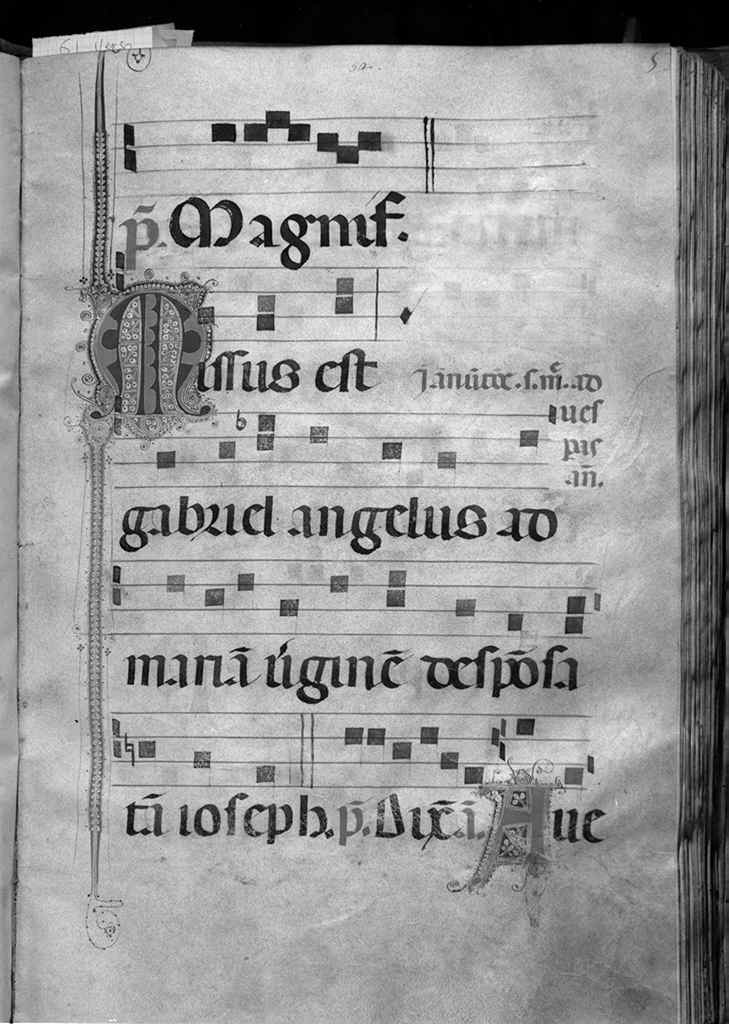 5
p̄. Magnif.
Missus est
J añūtoē. s. m̄. ad
ues
pas
añ.
gabriel angelus ad
mariā ūginē despōsa
tā ioseph. p̄. Dixā. Aue